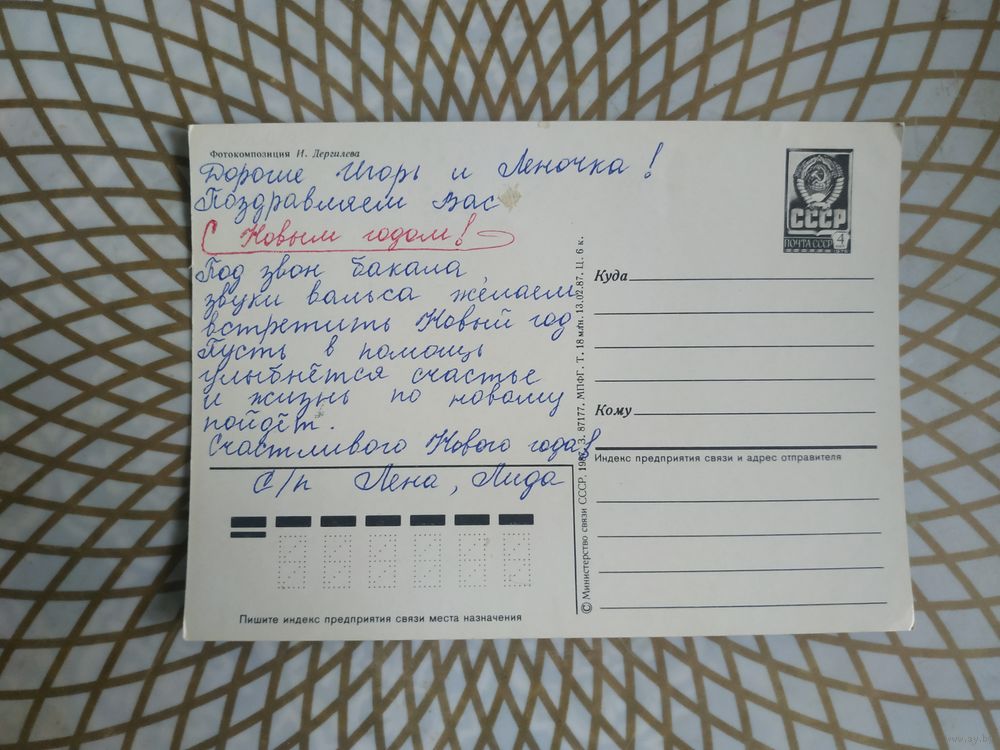 Фотокомпозиция И. Дергилева
Дорогие Игорь и Леночка!
Поздравляем Вас
С Новым годом!
Под звон бакала,
звуки вальса желаем
встретить Новый год
Пусть в помощь
улыбнётся счастье
и жизнь по новому
пойдёт.
Счастливого Нового года!
С/п Лена, Лида
Пишите индекс предприятия связи места назначения
© Министерство связи СССР. 1987. З. 87177. МПФГ. Т. 18 млн. 13.02.87. Ц. 6 к.
СССР
ПОЧТА СССР 4
Куда
Кому
Индекс предприятия связи и адрес отправителя
www.ay.by